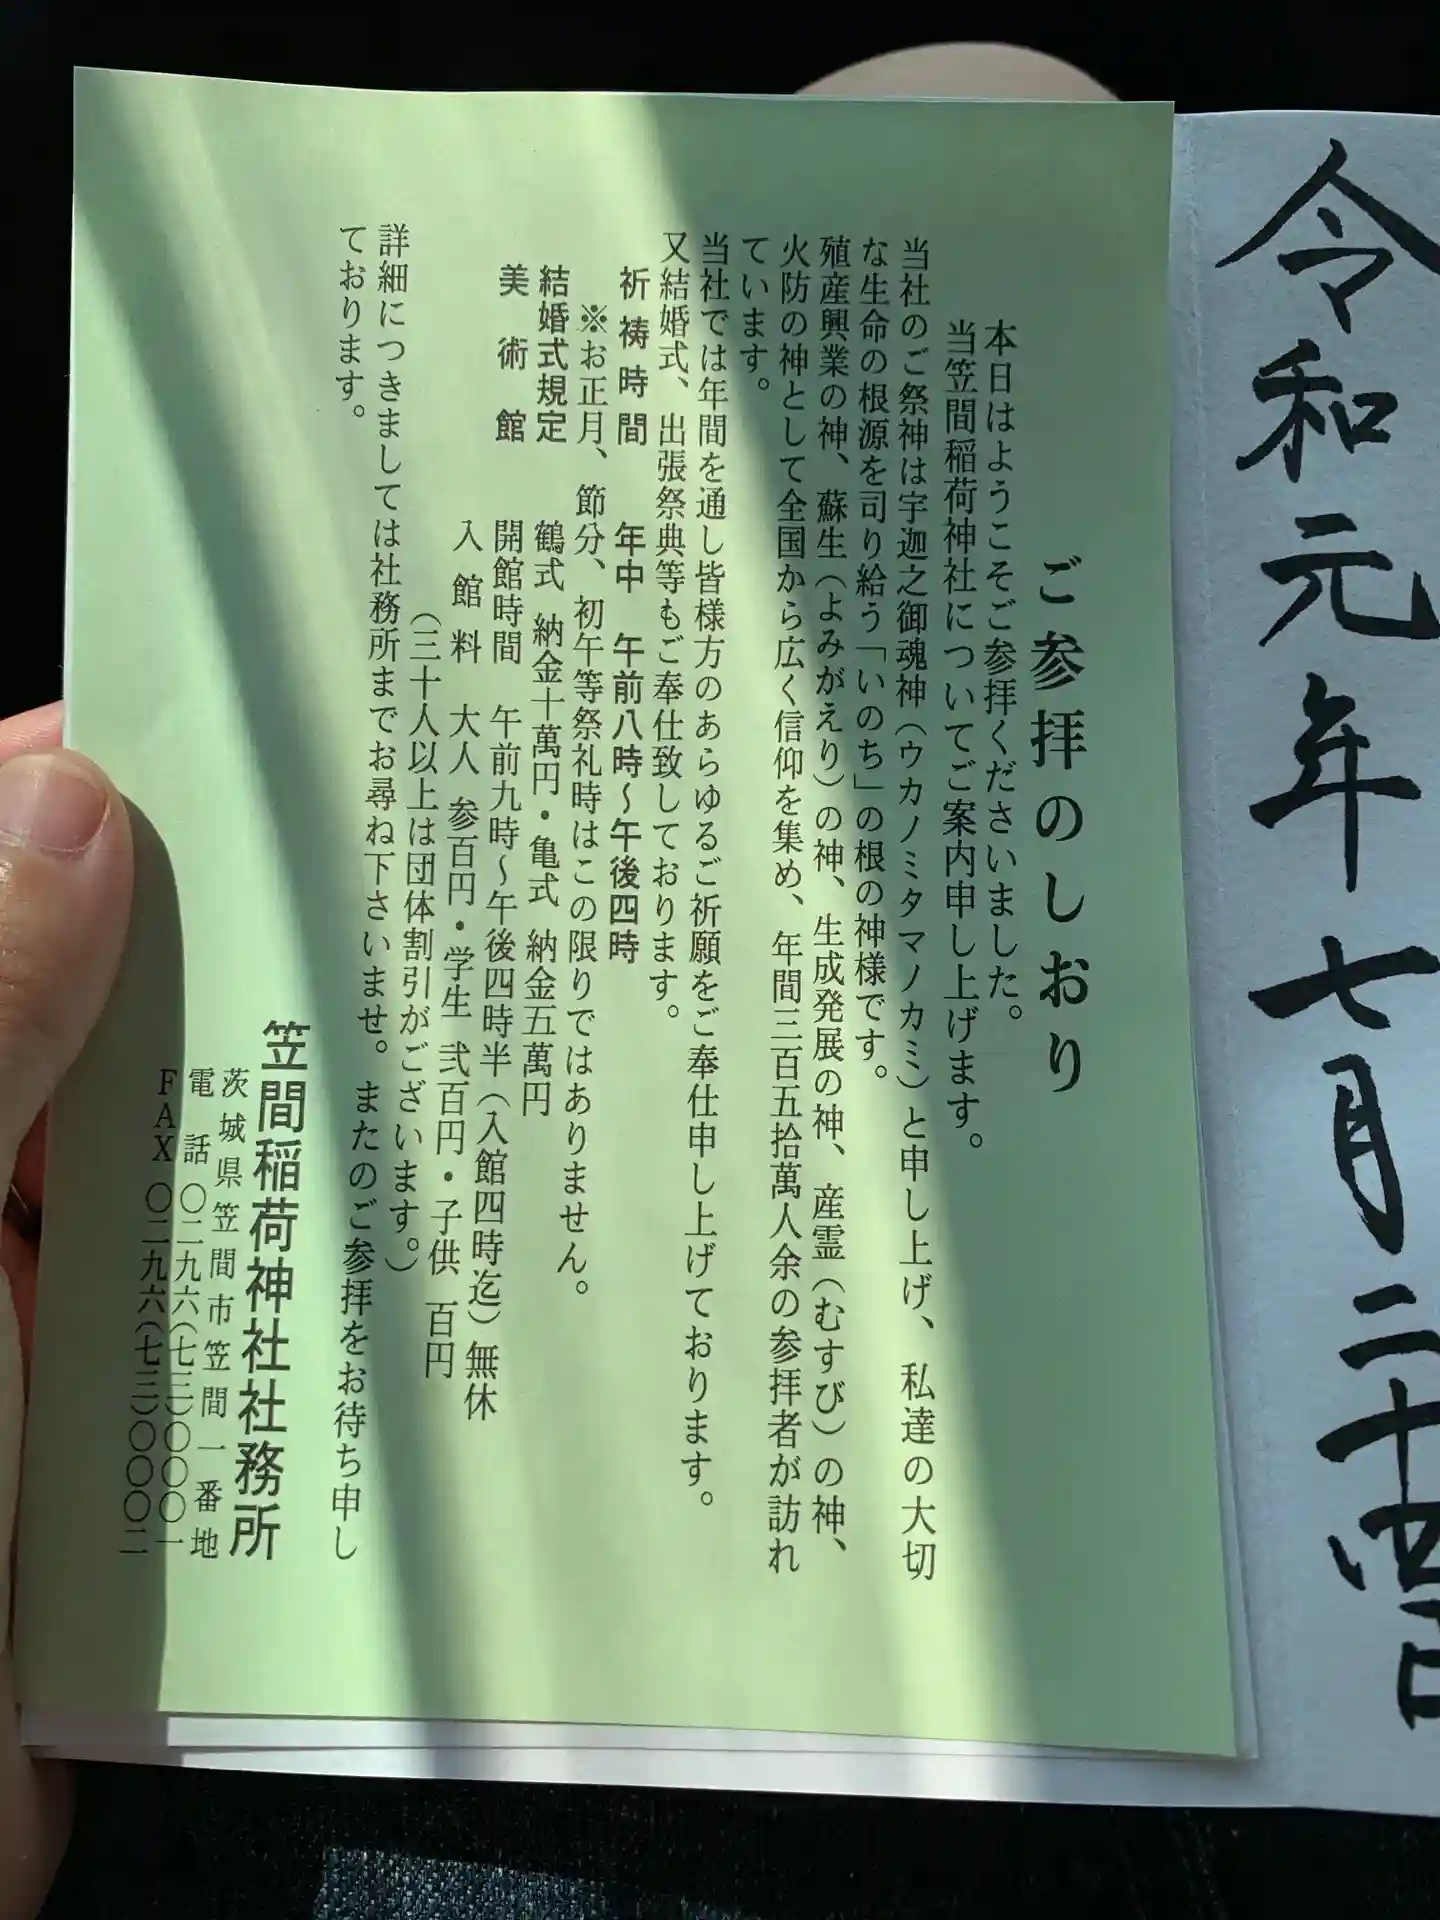 令和元年七月二十四日
ご参拝のしおり
本日はようこそご参拝くださいました。
当笠間稲荷神社についてご案内申し上げます。
当社のご祭神は宇迦之御魂神（ウカノミタマノカミ）と申し上げ、私達の大切
な生命の根源を司り給う「いのち」の根の神様です。
殖産興業の神、蘇生（よみがえり）の神、生成発展の神、産霊（むすび）の神、
火防の神として全国から広く信仰を集め、年間三百五拾萬人余の参拝者が訪れ
ています。
当社では年間を通し皆様方のあらゆるご祈願をご奉仕申し上げております。
又結婚式、出張祭典等もご奉仕致しております。
祈祷時間 年中 午前八時～午後四時
※お正月、節分、初午等祭礼時はこの限りではありません。
結婚式規定 鶴式 納金十萬円・亀式 納金五萬円
美術館 開館時間 午前九時～午後四時半（入館四時迄）無休
入館料 大人 参百円・学生 弐百円・子供 百円
（三十人以上は団体割引がございます。）
詳細につきましては社務所までお尋ね下さいませ。またのご参拝をお待ち申し
ております。
笠間稲荷神社社務所
茨城県笠間市笠間一番地
電話 〇二九六（七三）〇〇〇一
FAX 〇二九六（七三）〇〇〇二